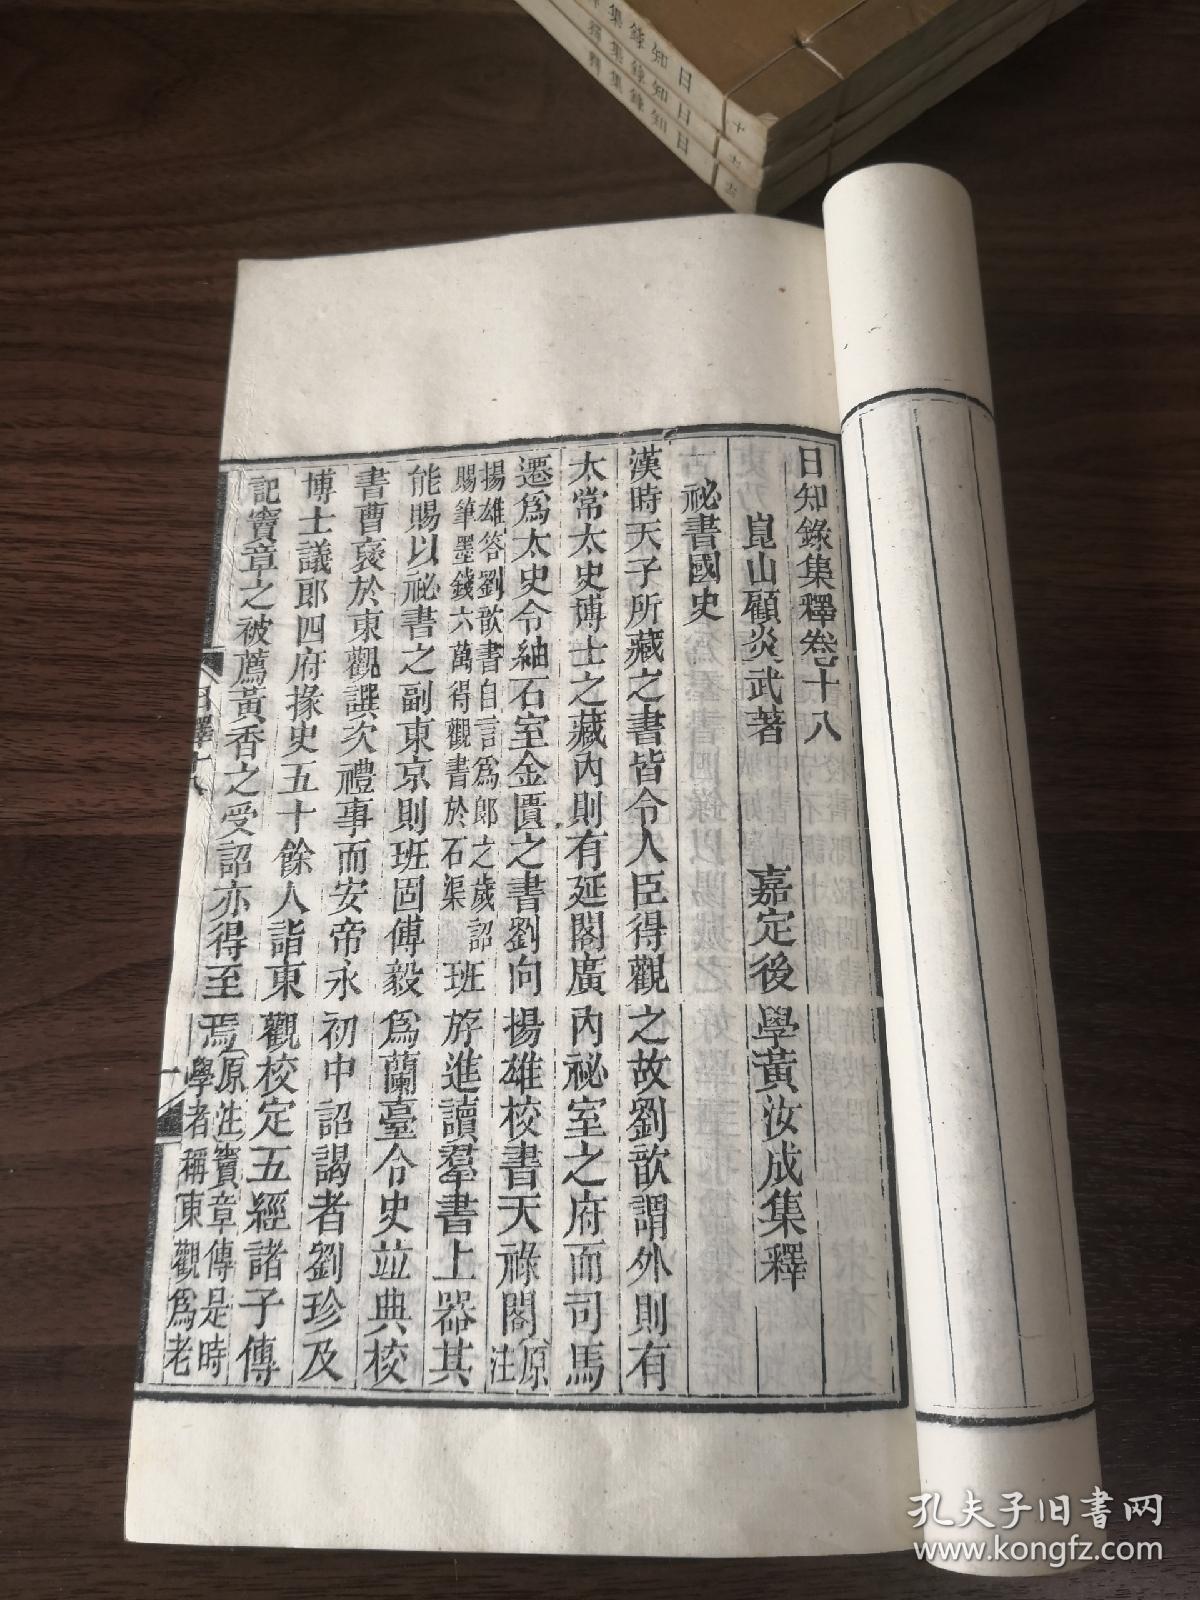 日知錄集釋卷十八
崑山顧炎武著 嘉定後學黃汝成集釋
祕書國史
漢時天子所藏之書皆令人臣得觀之故劉歆謂外則有
太常太史博士之藏內則有延閣廣內祕室之府而司馬
遷為太史令紬石室金匱之書劉向揚雄校書天祿閣原注
揚雄答劉歆書自言為郎之歲詔
賜筆墨錢六萬得觀書於石渠
班斿進讀羣書上器其
能賜以祕書之副東京則班固傅毅為蘭臺令史並典校
書曹襃於東觀譔次禮事而安帝永初中詔謁者劉珍及
博士議郎四府掾史五十餘人詣東觀校定五經諸子傳
記竇章之被薦黃香之受詔亦得至焉
原注竇章傳是時
學者稱東觀為老
日釋十八
一
日知錄集釋
十
日知錄集釋
十一
日知錄集釋
孔夫子旧书网
www.kongfz.com